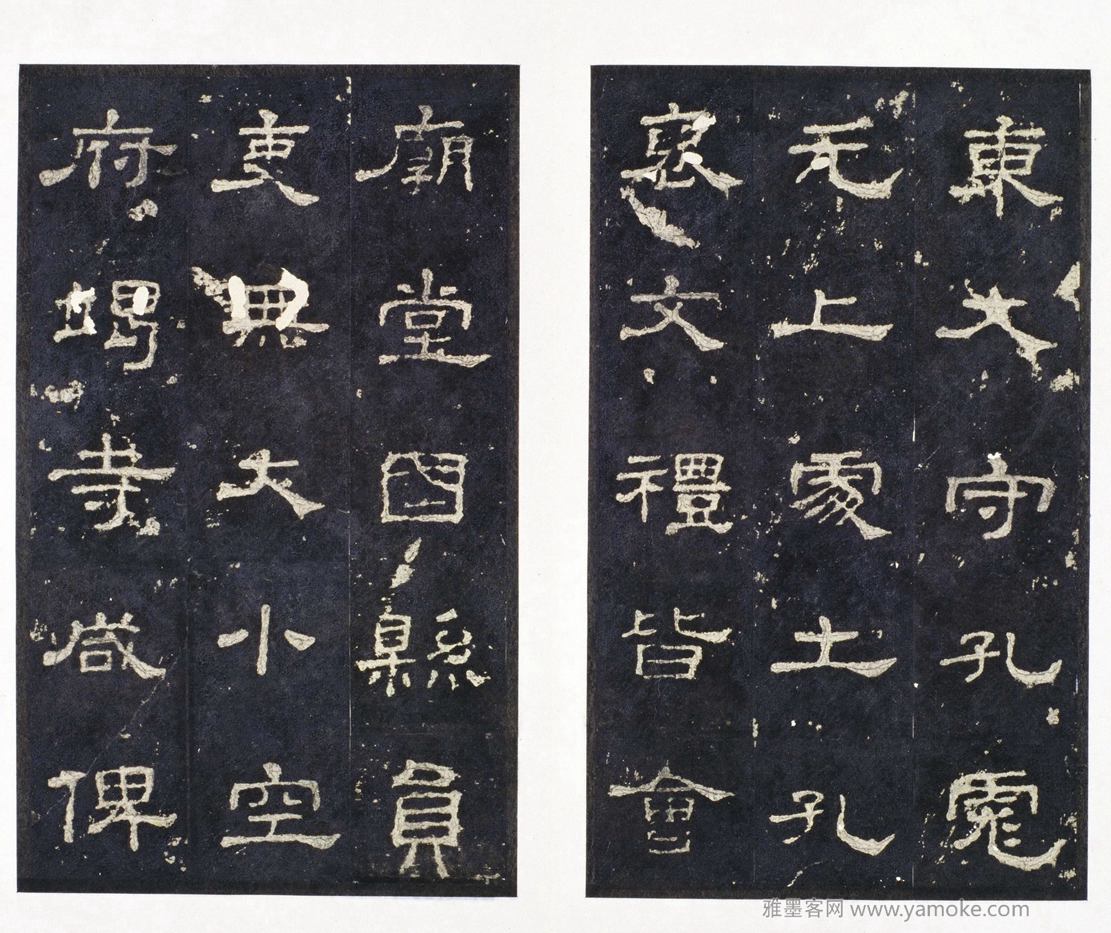 東大守孔彪
元上處士孔
褒文禮皆會
廟堂國縣員
吏無大小空
府竭寺咸俾
雅墨客网 www.yamoke.com